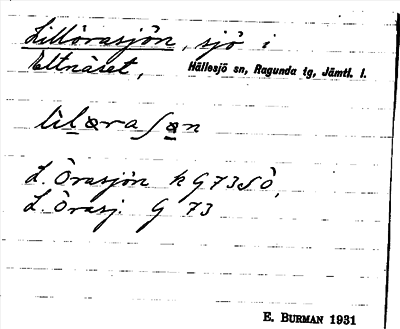 Lillörasjön, sjö i
Ältnäset, Hällesjö sn, Ragunda tg, Jämtl. l.
lìlæra ʃæn
L. Örasjön k G73SÖ,
L. Örasj. G 73
E. BURMAN 1931